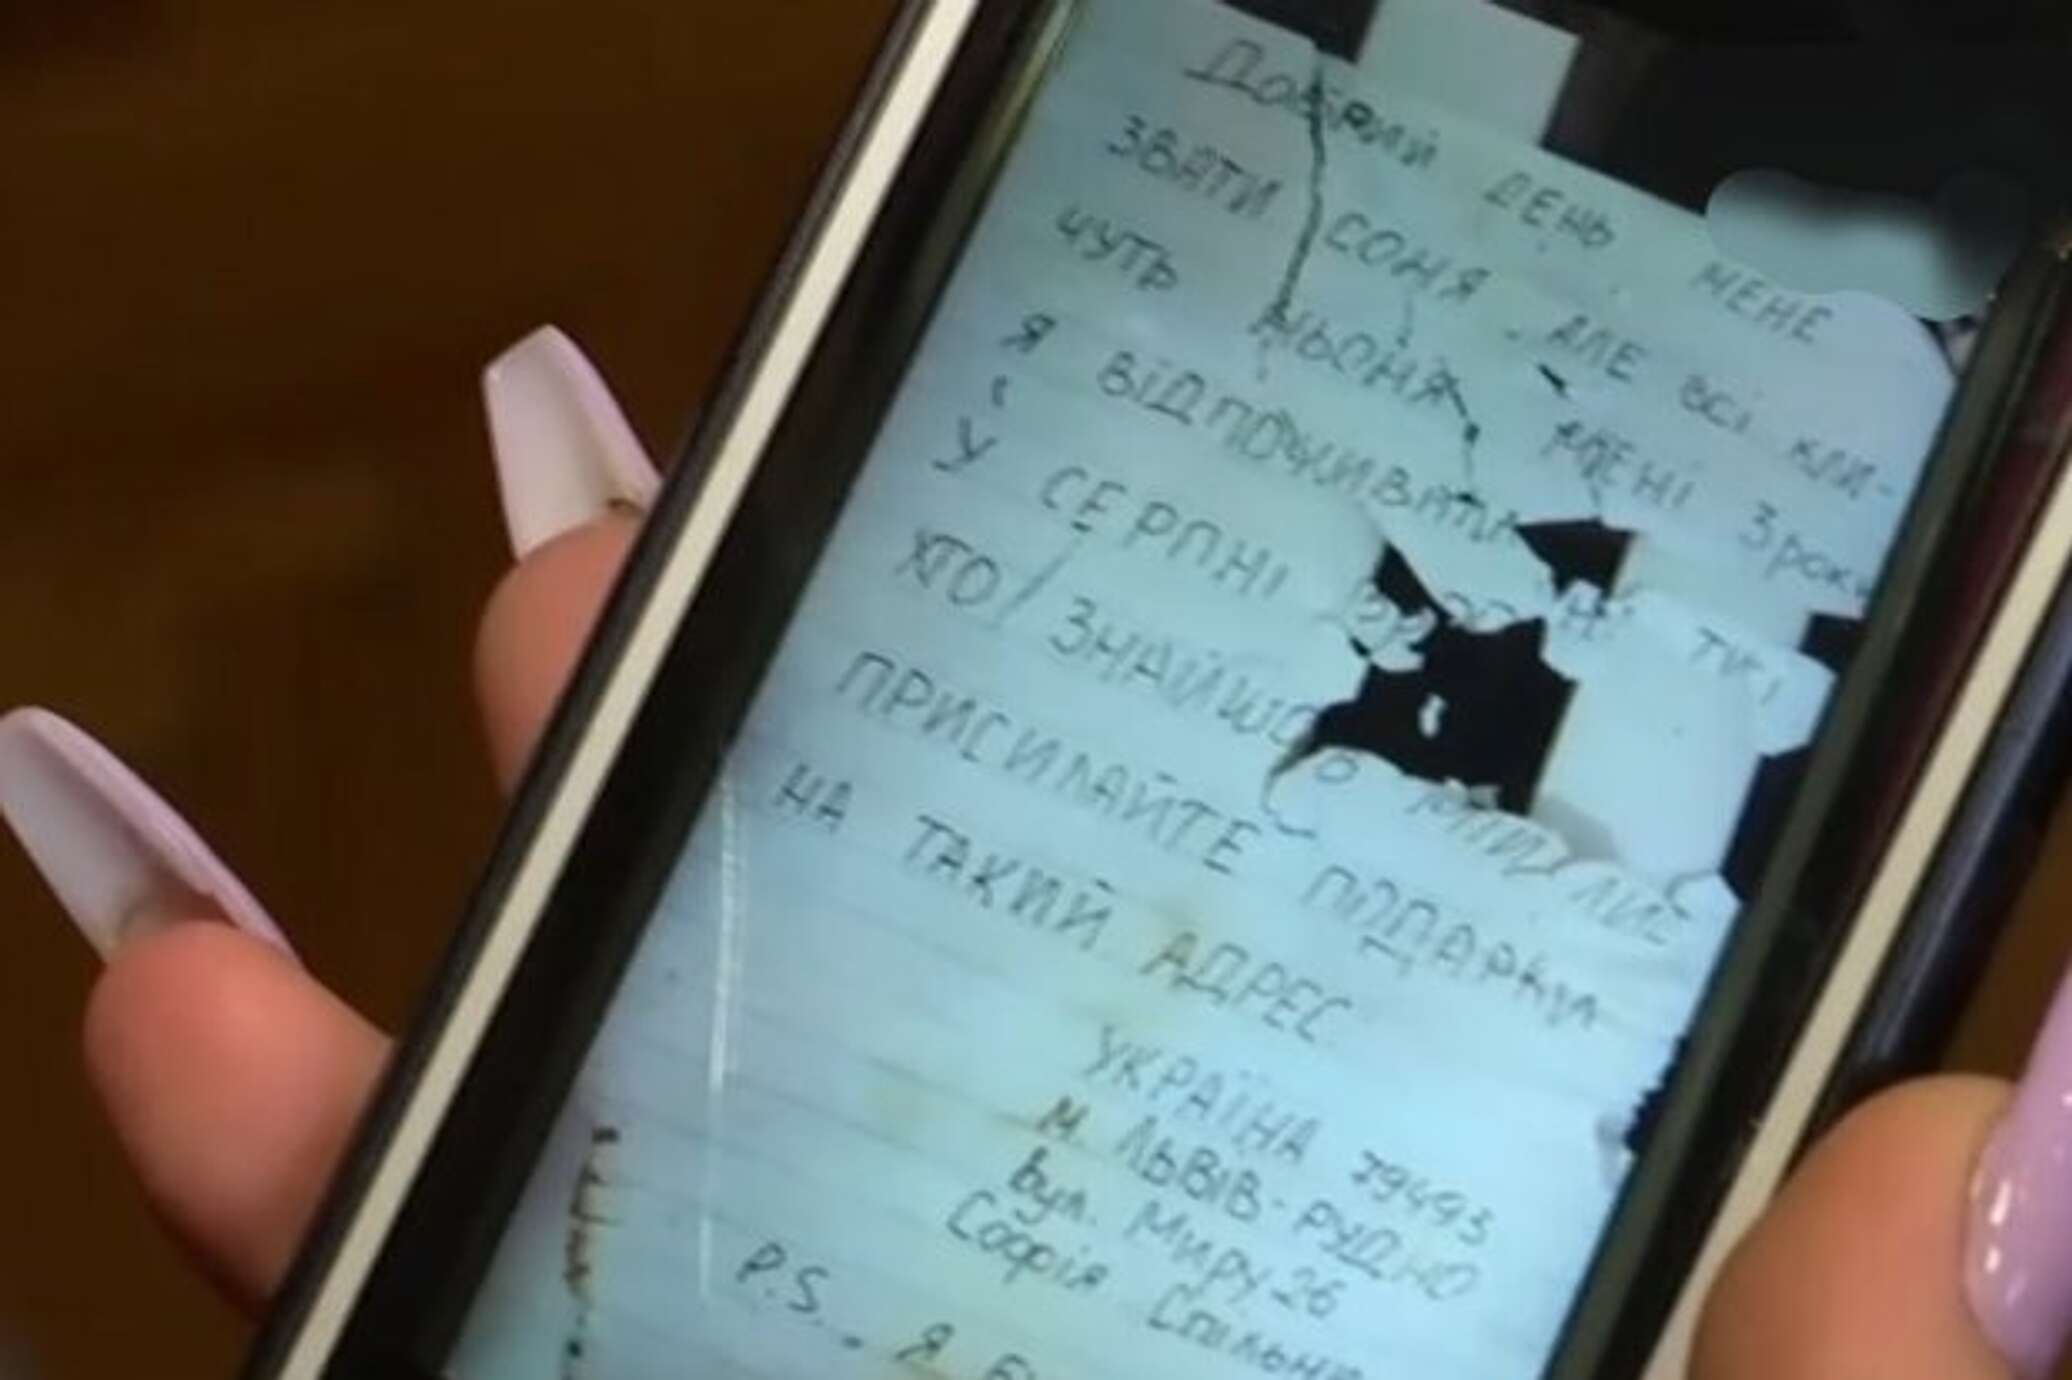 ДОБРИЙ ДЕНЬ МЕНЕ
ЗВАТИ СОНЯ АЛЕ всі КЛИ-
ЧУТЬ НЬОНЯ МЕНІ 3 роки
Я ВІДПОЧИВАЛА
У СЕРПНІ
ХТО ЗНАЙШОВ
ПРИСИЛАЙТЕ ПОДАРКИ
НА ТАКИЙ АДРЕС
УКРАЇНА 79493
М. ЛЬВІВ-РУДНО
вул. Миру 26
Софія
P.S. - Я